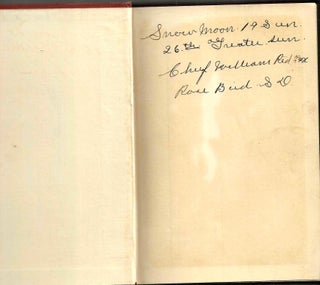 Snow Moon 19 Sun.
26th Greater Sun.
Chief William Red Fox
Rose Bud. S D